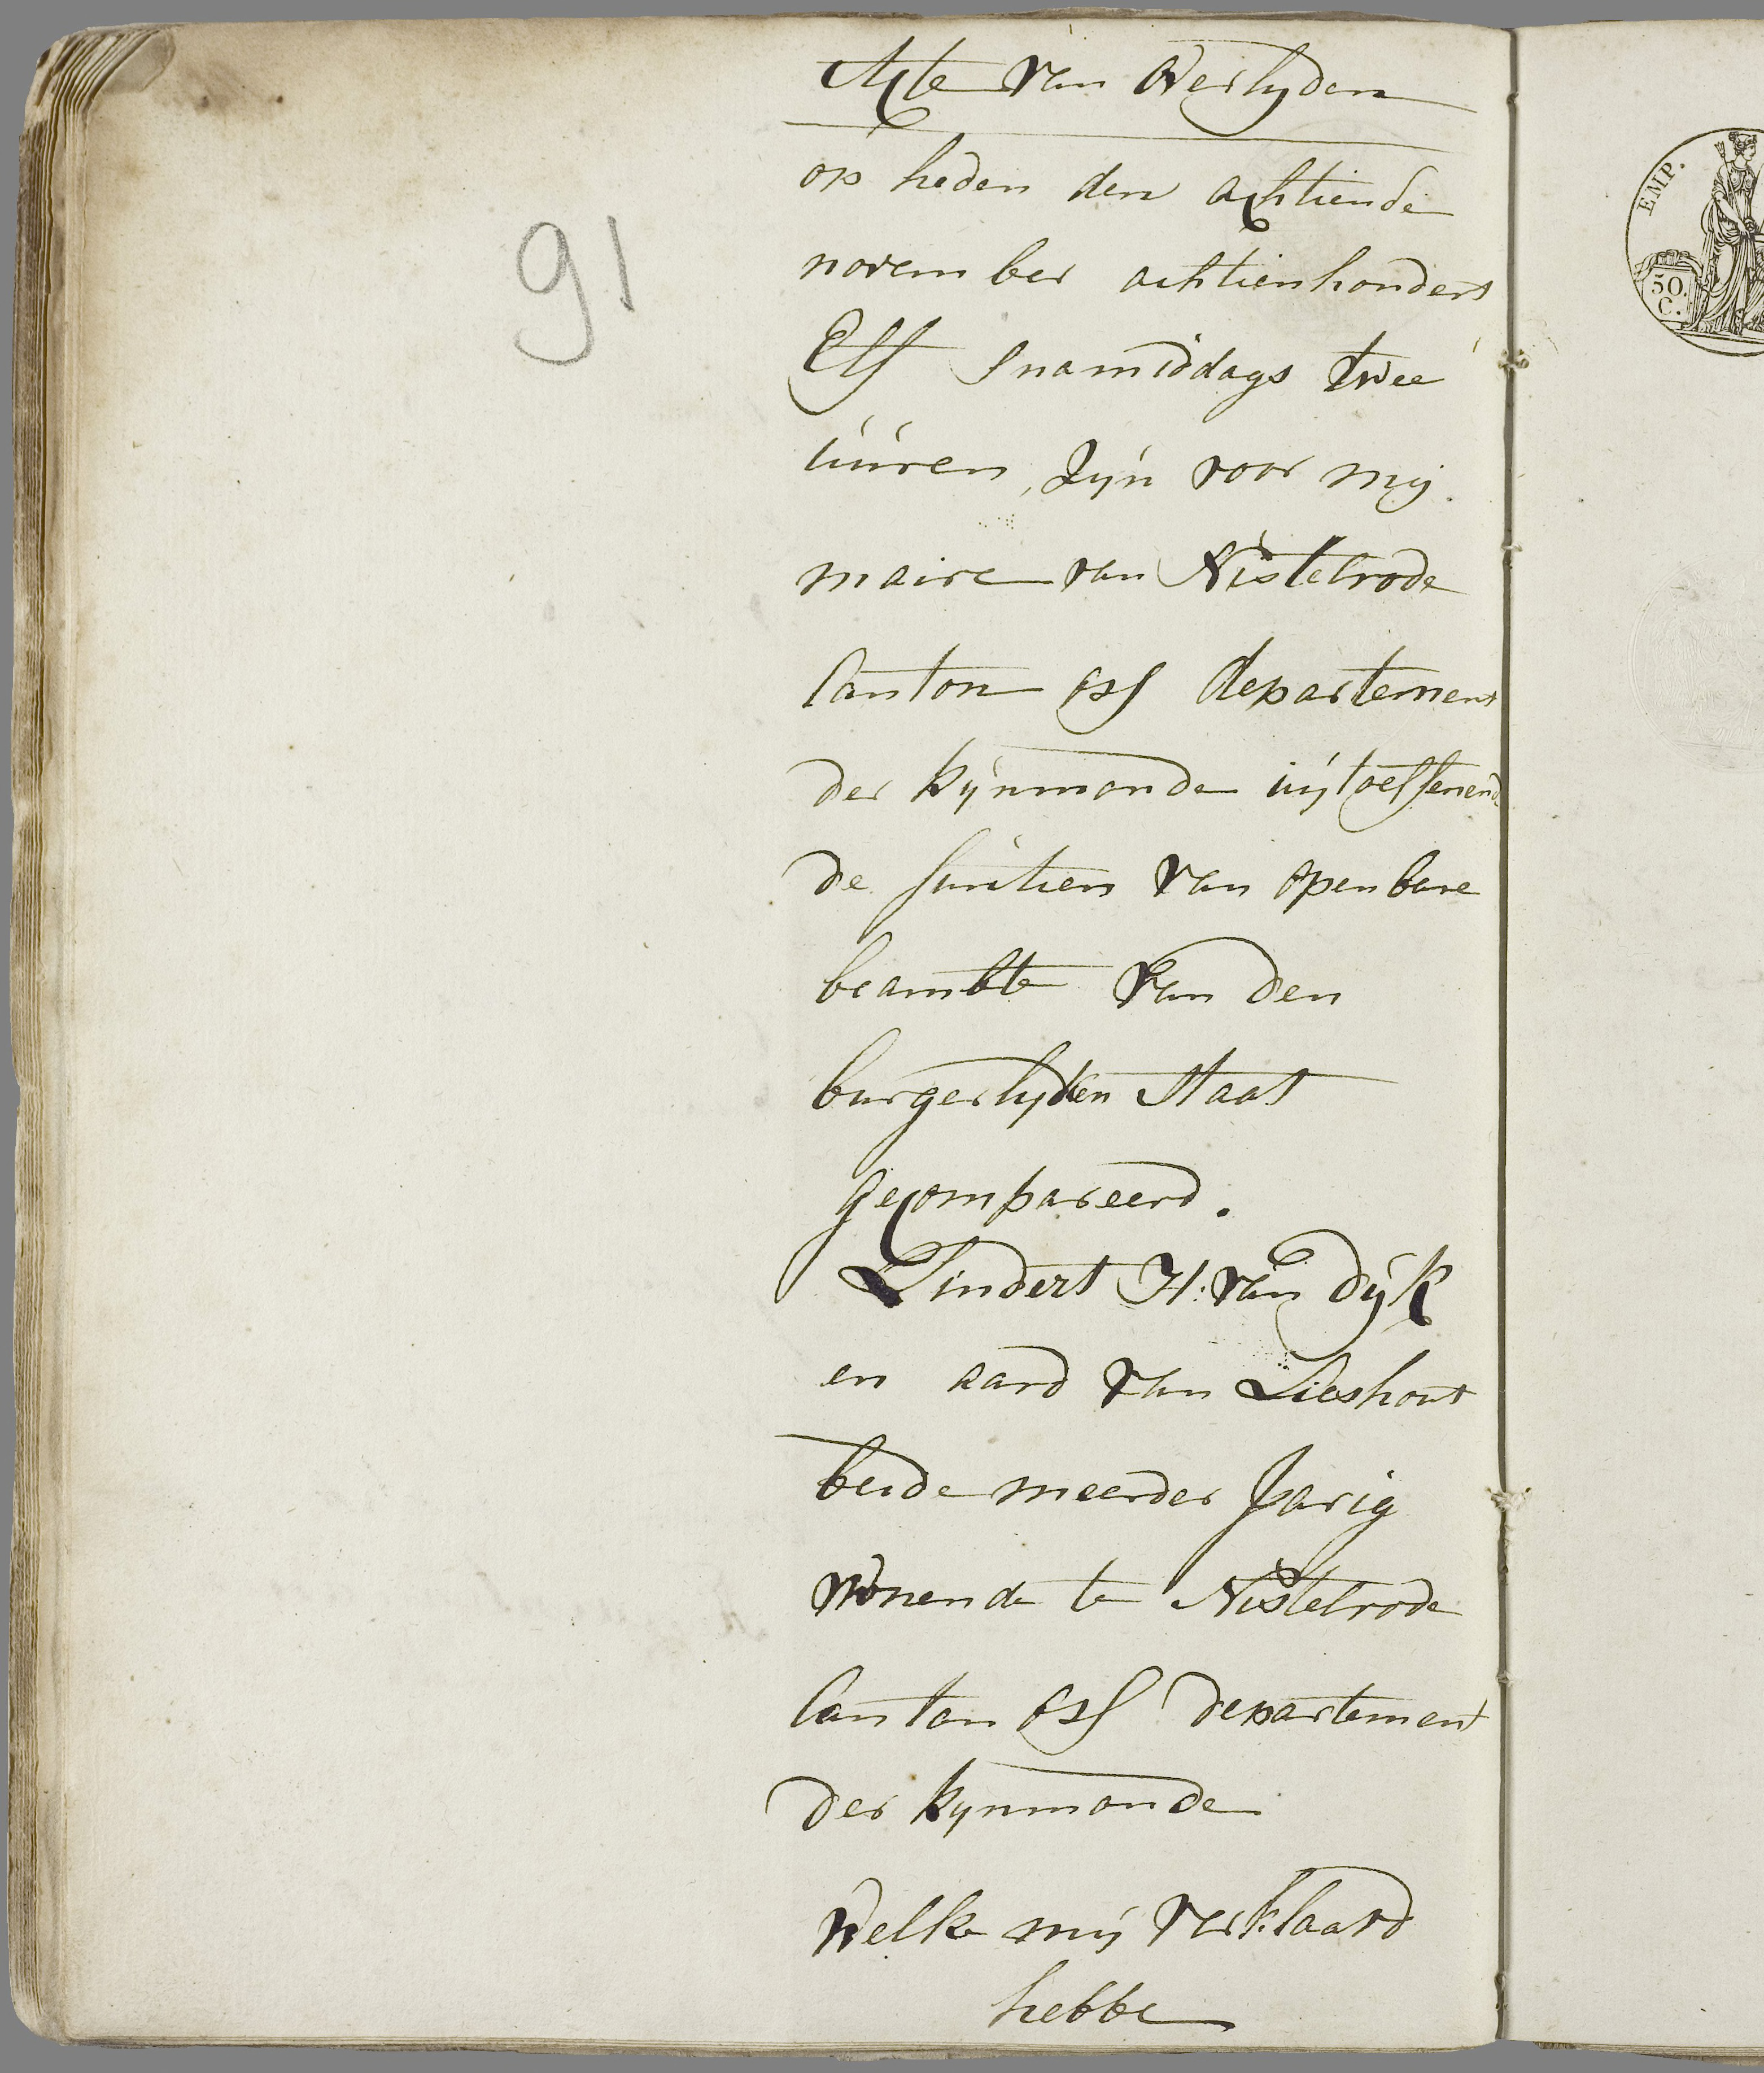 Acte van Overlyden
op heden den achtiende
november achtienhondert
Elf snamiddags twee
uuren, Zyn voor mij
maire van Nistelrode
Canton oss departement
der Rynmonde uijtoeffenend
de functien van openbare
beambte van den
burgerlyken Staat
gecompareerd.
Lindert H. van dyk
en aard van Lieshout
beide meerder Jarig
Wonende te Nistelrode
Canton oss departement
der Rynmonde
Welke mij verklaard
hebbe
91
EMP.
50.
C.